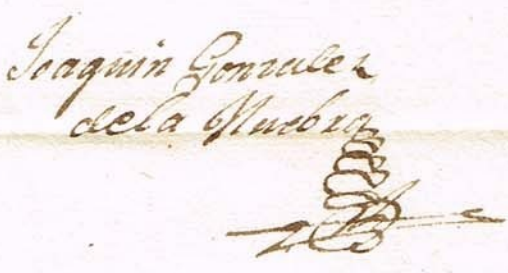 Joaquin Gonzalez
dela Nuebra